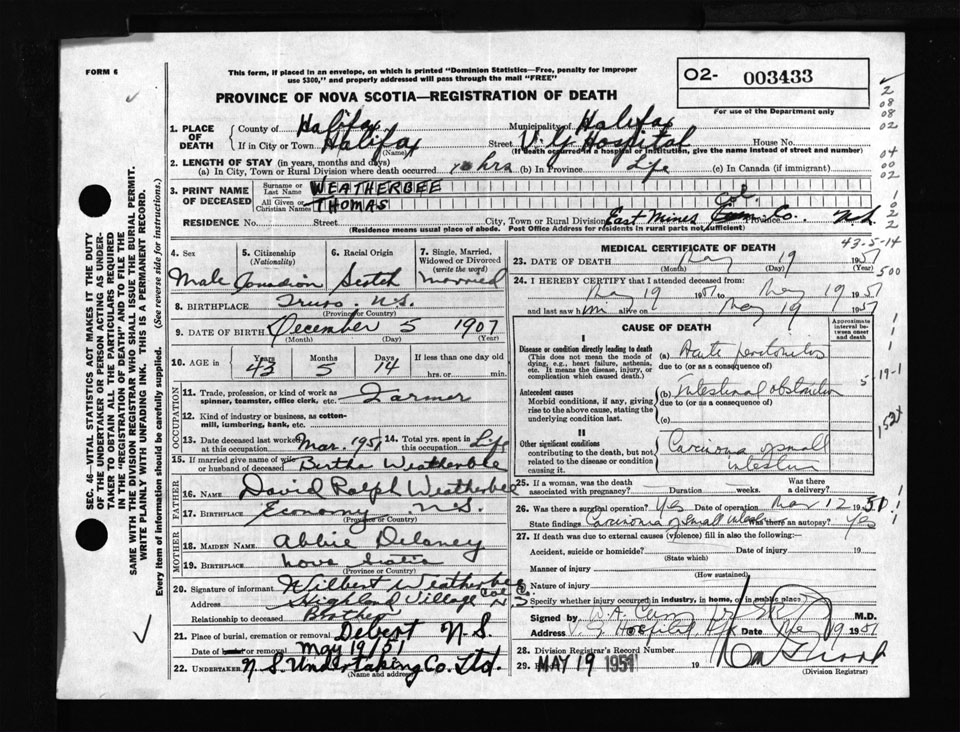 FORM 6
This form, if placed in an envelope, on which is printed "Dominion Statistics—Free, penalty for improper
use $300," and properly addressed will pass through the mail "FREE"
O2- 003433
For use of the Department only
PROVINCE OF NOVA SCOTIA—REGISTRATION OF DEATH
1. PLACE OF DEATH
County of Halifax Municipality of Halifax
If in City or Town Halifax (Name) Street V. G. Hospital House No.
(If death occurred in a hospital or institution, give the name instead of street and number)
2. LENGTH OF STAY (in years, months and days)
(a) In City, Town or Rural Division where death occurred hrs (b) In Province Life (c) In Canada (if immigrant)
3. PRINT NAME OF DECEASED
Surname or Last Name WEATHERBEE
All Given or Christian Names THOMAS
RESIDENCE No. Street City, Town or Rural Division East Mines Col. Co. N.S.
(Residence means usual place of abode. Post Office Address for residents in rural parts not sufficient)
4. Sex
Male
5. Citizenship
(Nationality)
Canadian
6. Racial Origin
Scotch
7. Single, Married,
Widowed or Divorced
(write the word)
Married
8. BIRTHPLACE Truro N.S.
(Province or Country)
9. DATE OF BIRTH December 5 1907
(Month) (Day) (Year)
10. AGE in Years 43 Months 5 Days 14 If less than one day old
hrs. or min.
OCCUPATION
11. Trade, profession, or kind of work as
spinner, teamster, office clerk, etc. Farmer
12. Kind of industry or business, as cotton-
mill, lumbering, bank, etc.
13. Date deceased last worked
at this occupation Mar. 1951
14. Total yrs. spent in
this occupation Life
15. If married give name of wife
or husband of deceased Bertha Weatherbee
FATHER
16. NAME David Ralph Weatherbee
17. BIRTHPLACE Economy N.S.
(Province or Country)
MOTHER
18. MAIDEN NAME Abbie Delaney
19. BIRTHPLACE Nova Scotia
(Province or Country)
20. Signature of informant Wilbert Weatherbee
Address Highland Village Col. Co. N.S.
Relationship to deceased Brother
21. Place of burial, cremation or removal Debert N.S.
Date of burial or removal May 19/51
22. UNDERTAKER N.S. Undertaking Co. Ltd.
(Name and address)
43-5-14
MEDICAL CERTIFICATE OF DEATH
23. DATE OF DEATH May 19 1951
(Month) (Day) (Year)
500
24. I HEREBY CERTIFY that I attended deceased from:
May 19 1951 to May 19 1951
and last saw him alive on May 19 1951
CAUSE OF DEATH
Approximate interval between onset and death
I
Disease or condition directly leading to death
(This does not mean the mode of dying, e.g., heart failure, asthenia, etc. It means the disease, injury, or complication which caused death.)
(a) Acute peritonitis
due to (or as a consequence of)
Antecedent causes
Morbid conditions, if any, giving rise to the above cause, stating the underlying condition last.
(b) Intestinal obstruction
due to (or as a consequence of)
(c)
5-19-1
152+
II
Other significant conditions
contributing to the death, but not related to the disease or condition causing it.
Carcinoma of small
intestine
25. If a woman, was the death
associated with pregnancy? Duration weeks. Was there
a delivery?
26. Was there a surgical operation? Yes Date of operation Mar 12 1951
State findings Carcinoma of small Was there an autopsy? Yes
27. If death was due to external causes (violence) fill in also the following:
Accident, suicide or homicide? Date of injury 19
(State which)
Manner of injury
(How sustained)
Nature of injury
Specify whether injury occurred in industry, in home, or in public place
Signed by M.D.
Address V. G. Hospital, Hfx Date May 19 1951
28. Division Registrar's Record Number
29. MAY 19 1951 19
(Division Registrar)
SEC. 46—VITAL STATISTICS ACT MAKES IT THE DUTY
OF THE UNDERTAKER OR PERSON ACTING AS UNDER-
TAKER TO OBTAIN ALL THE PARTICULARS REQUIRED
IN THE "REGISTRATION OF DEATH" AND TO FILE THE
SAME WITH THE DIVISION REGISTRAR WHO SHALL ISSUE THE BURIAL PERMIT.
WRITE PLAINLY WITH UNFADING INK. THIS IS A PERMANENT RECORD.
Every item of information should be carefully supplied. (See reverse side for instructions.)
2
08
08
02
04
00
02
1
0
2
2